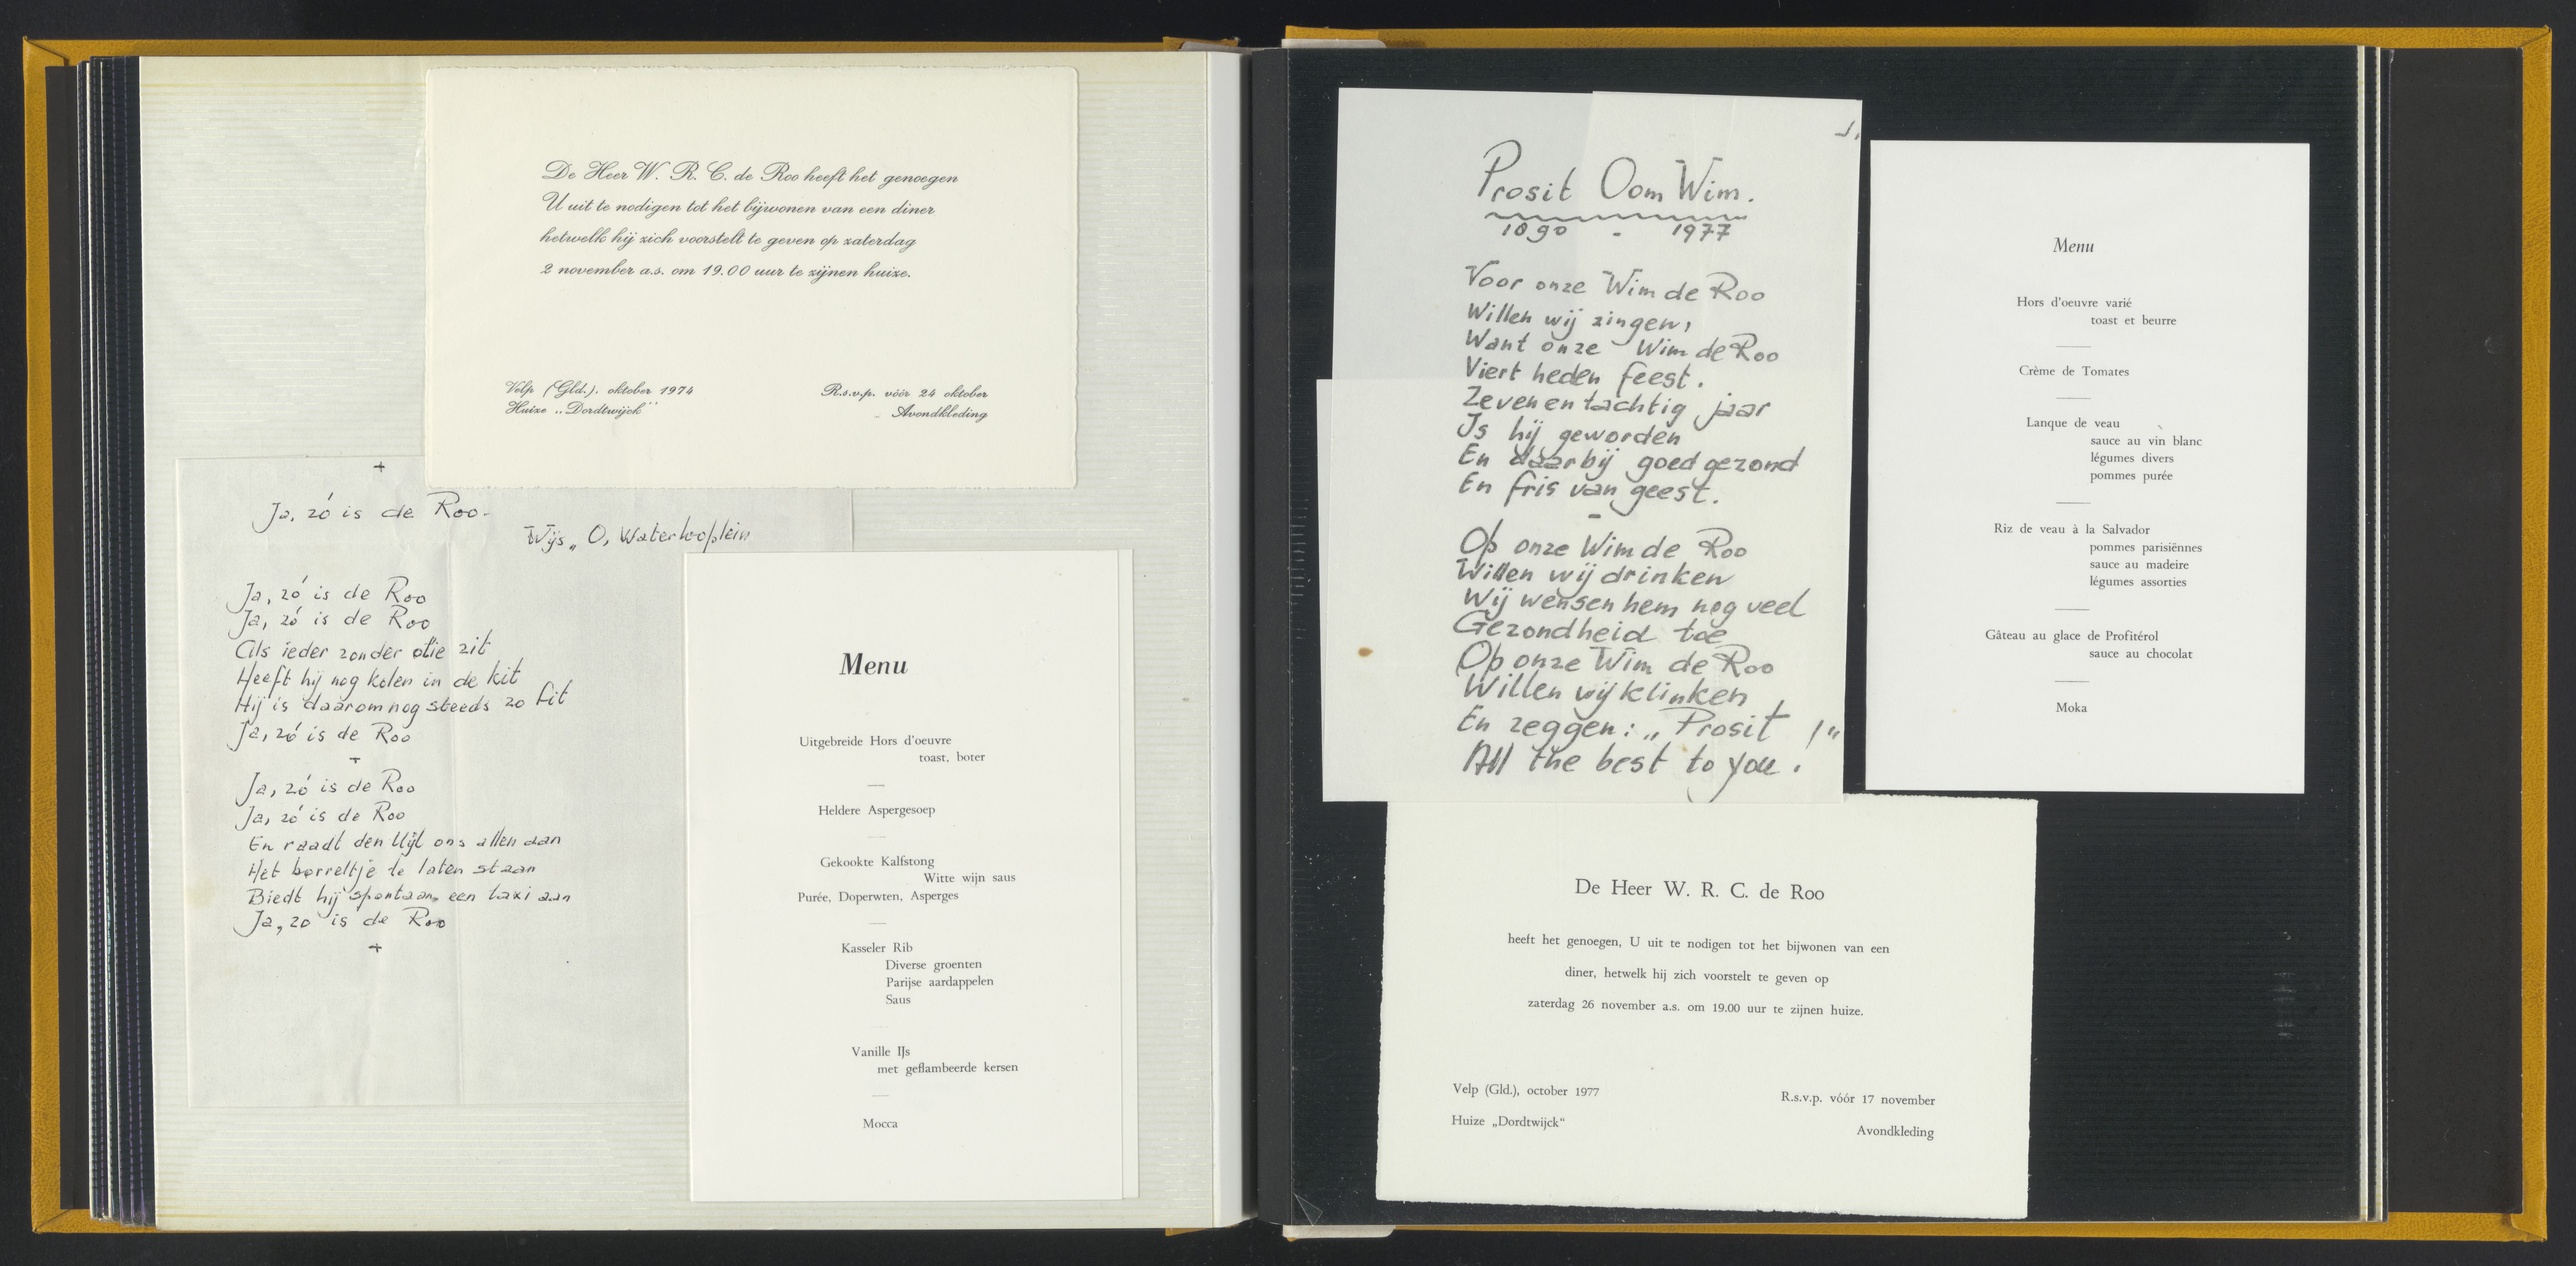 De Heer W. R. C. de Roo heeft het genoegen
U uit te nodigen tot het bijwonen van een diner
hetwelk hij zich voorstelt te geven op zaterdag
2 november a.s. om 19.00 uur te zijnen huize.
Velp (Gld.), oktober 1974
Huize „Dordtwijck"
R.s.v.p. vóór 24 oktober
Avondkleding
+
Ja, zó is de Roo-
Wijs „O, Waterlooplein
Ja, zó is de Roo
Ja, zó is de Roo
Als ieder zonder olie zit
Heeft hij nog kolen in de kit
Hij is daarom nog steeds zo fit
Ja, zó is de Roo
+
Ja, zó is de Roo
Ja, zó is de Roo
En raadt den Uijl ons allen aan
Het borreltje te laten staan
Biedt hij spontaan een taxi aan
Ja, zo is de Roo
+
Menu
Uitgebreide Hors d'oeuvre
toast, boter
Heldere Aspergesoep
Gekookte Kalfstong
Witte wijn saus
Purée, Doperwten, Asperges
Kasseler Rib
Diverse groenten
Parijse aardappelen
Saus
Vanille IJs
met geflambeerde kersen
Mocca
1.
Prosit Oom Wim.
1890 - 1977
Voor onze Wim de Roo
Willen wij zingen,
Want onze Wim de Roo
Viert heden feest.
Zevenentachtig jaar
Is hij geworden
En daarbij goed gezond
En fris van geest.
-
Op onze Wim de Roo
Willen wij drinken
Wij wensen hem nog veel
Gezondheid toe
Op onze Wim de Roo
Willen wij klinken
En zeggen: „Prosit !"
All the best to you.
Menu
Hors d'oeuvre varié
toast et beurre
Crème de Tomates
Lanque de veau
sauce au vin blanc
légumes divers
pommes purée
Riz de veau à la Salvador
pommes parisiënnes
sauce au madeire
légumes assorties
Gâteau au glace de Profitérol
sauce au chocolat
Moka
De Heer W. R. C. de Roo
heeft het genoegen, U uit te nodigen tot het bijwonen van een
diner, hetwelk hij zich voorstelt te geven op
zaterdag 26 november a.s. om 19.00 uur te zijnen huize.
Velp (Gld.), october 1977
Huize „Dordtwijck"
R.s.v.p. vóór 17 november
Avondkleding